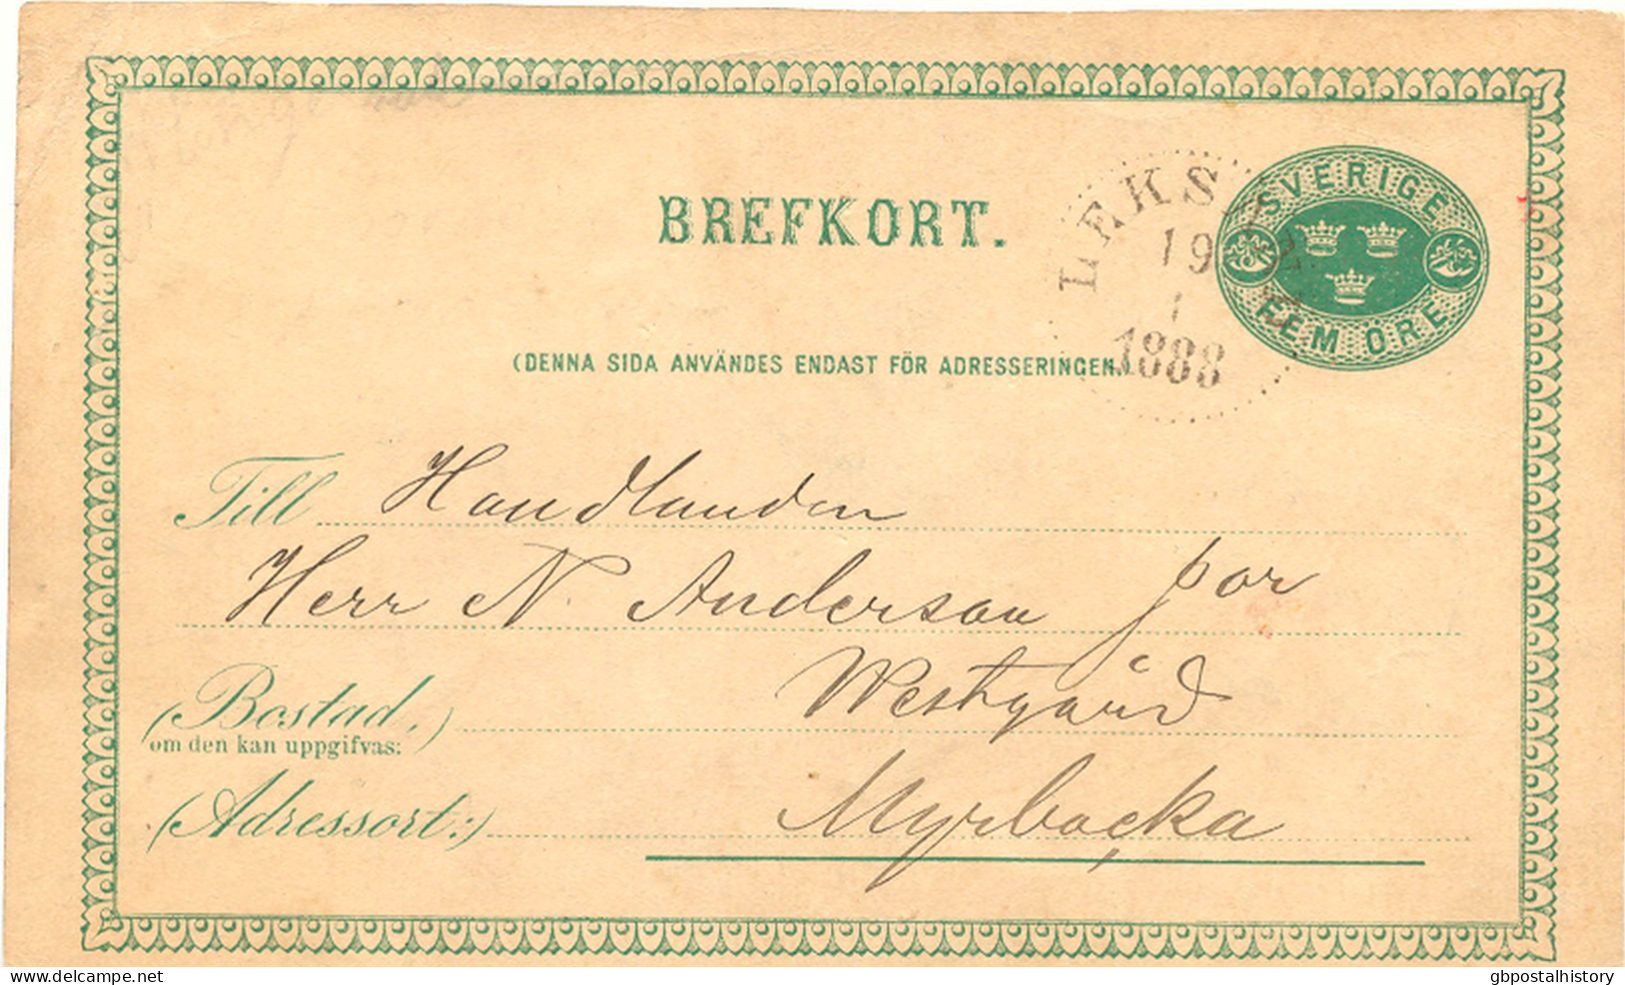 BREFKORT.
SVERIGE
FEM ÖRE
LEKSAND
19
1
1888
(DENNA SIDA ANVÄNDES ENDAST FÖR ADRESSERINGEN.)
Till Handlanden
Herr N. Anderson por
Westgärd
(Bostad,)
om den kan uppgifvas:
(Adressort:) Myrbacka
delcampe.net
gbpostalhistory